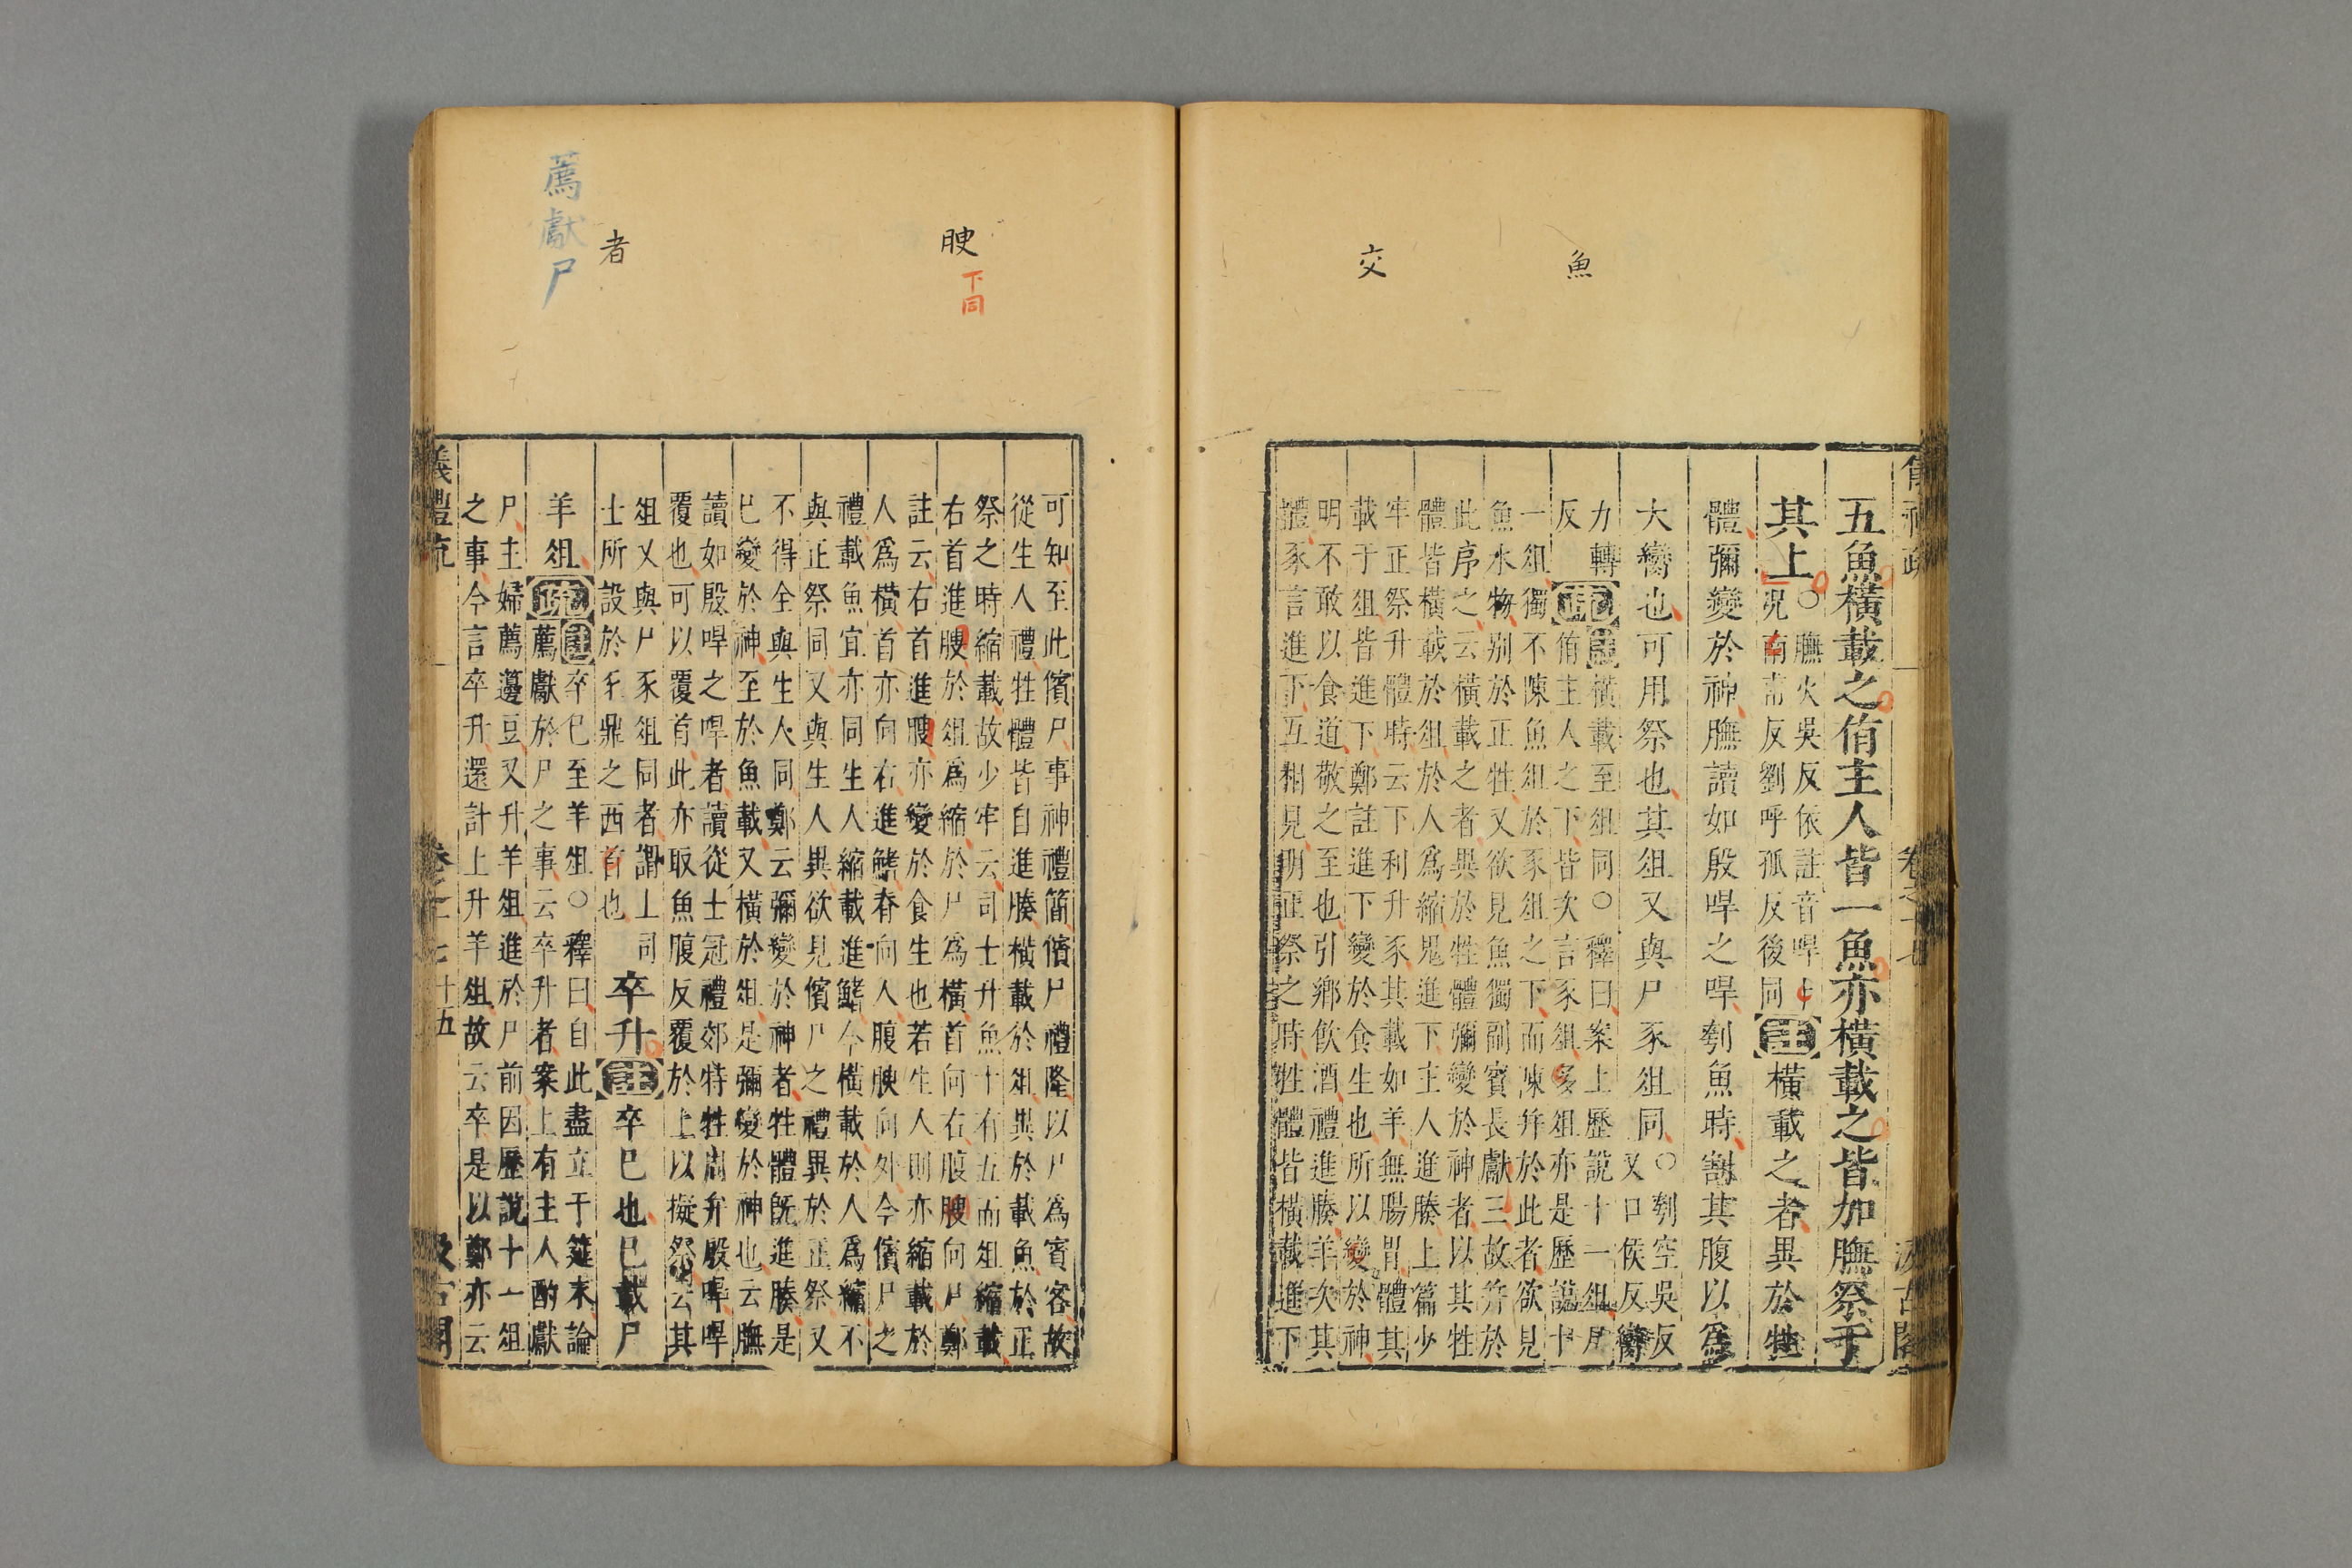 魚
交
五魚橫載之侑主人皆一魚亦橫載之皆加膴祭于
其上○膴火吳反依註音冔
況甫
反劉呼孤反後同註橫載之者異於牲
體彌變於神膴讀如殷冔之冔刳魚時割其腹以爲
大臠也可用祭也其俎又與尸豕俎同○刳空吳反
又口侯反臠
力轉
反
疏橫載至俎同○釋曰案上歷說十一俎尸
侑主人之下皆次言豕俎多俎亦是歷說十
一俎獨不陳魚俎於豕俎之下而陳幷於此者欲見
魚水物別於正牲又欲見魚獨副賓長獻三故幷於
此序之云橫載之者異於牲體彌變於神者以其牲
體皆橫載於俎於人爲縮鬼進下主人進腠上篇少
牢正祭升體時云下利升豕其載如羊無腸胃體其
載于俎皆進下鄭註進下變於食生也所以變於神
明不敢以食道敬之至也引鄉飲酒禮進腠羊次其
體豕言進下互相見明正祭之時牲體皆橫載進下
腴
下同
者
薦獻尸
可知至此儐尸事神禮簡儐尸禮隆以尸爲賓客故
從生人禮牲體皆自進腠橫載於俎異於載魚於正
祭之時縮載故少牢云司士升魚十有五而俎縮載
右首進腴於俎爲縮於尸爲橫首向右腹腴向尸鄭
註云右首進腴亦變於食生也若生人則亦縮載於
人爲橫首亦向右進鰭脊向人腹腴向外今儐尸之
禮載魚宜亦同生人縮載進鰭今橫載於人爲縮不
與正祭同又與生人異欲見儐尸之禮異於正祭又
不得全與生人同鄭云彌變於神者牲體旣進腠是
已變於神至於魚載又橫於俎是彌變於神也云膴
讀如殷冔之冔者讀從士冠禮郊特牲周弁殷冔冔
覆也可以覆首此亦取魚腹反覆於上以擬祭云其
俎又與尸豕俎同者謂上司
士所設於豕鼎之西首也
卒升註卒已也已載尸
羊俎疏薦註卒已至羊俎○釋曰自此盡立于筵末論
獻於尸之事云卒升者案上有主人酌獻
尸主婦薦籩豆又升羊俎進於尸前因歷說十一俎
之事今言卒升還計上升羊俎故云卒是以鄭亦云
儀禮疏
卷之十七
十五
汲古閣